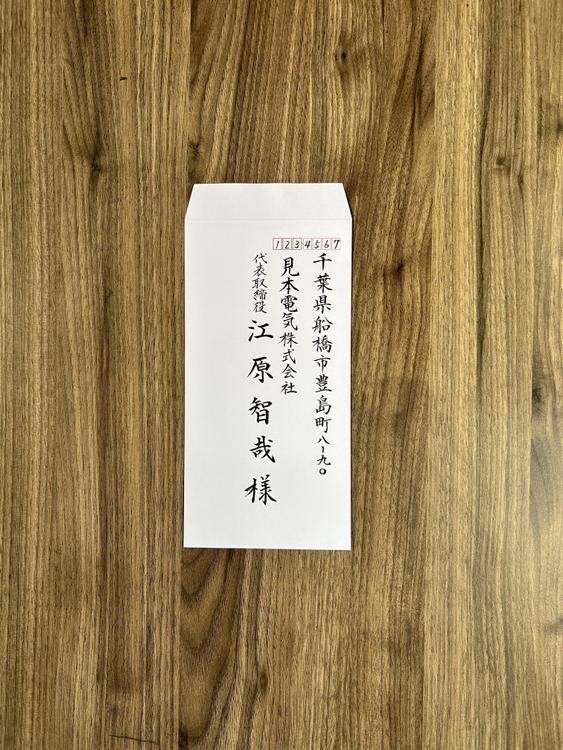 1234567
千葉県船橋市豊島町八ー九〇
見本電気株式会社
代表取締役
江原智哉様